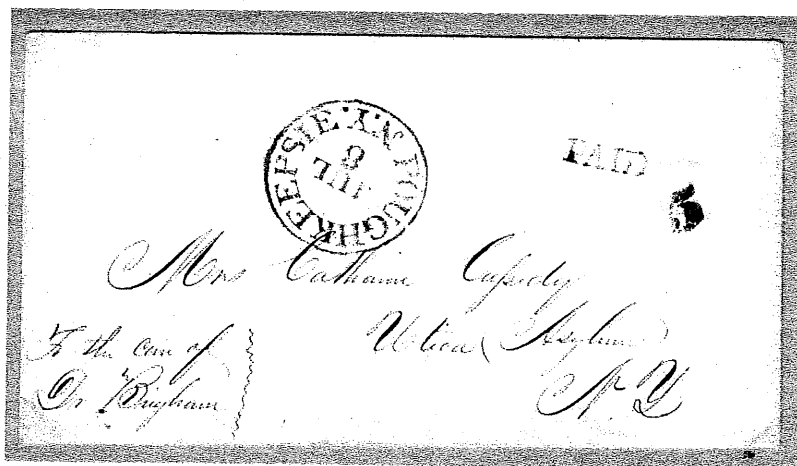 POUGHKEEPSIE N.Y.
JUL
PAID
5
Mrs Catharine Cassidy
Utica (Asylum)
N. Y
To the care of
Dr. Brigham